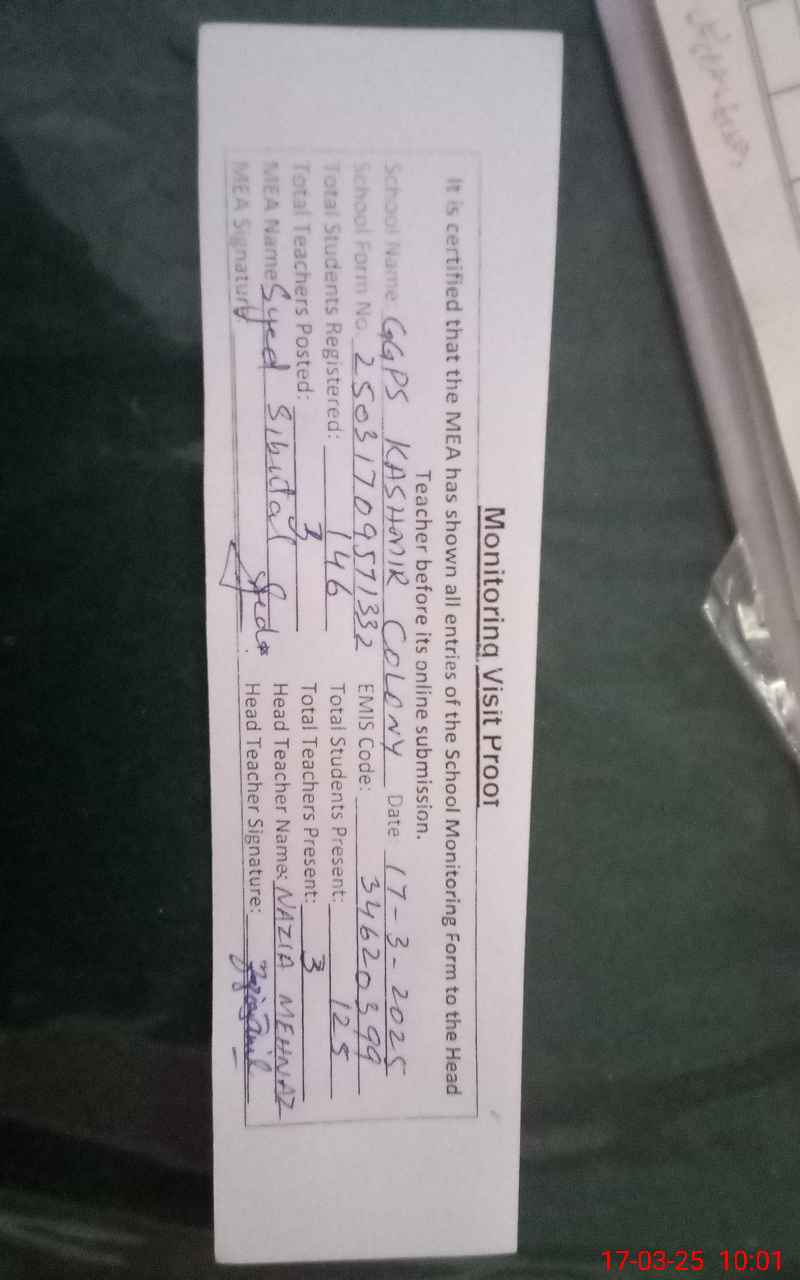 Monitoring Visit Proof
It is certified that the MEA has shown all entries of the School Monitoring Form to the Head
Teacher before its online submission.
School Name GGPS KASHMIR COLONY Date: 17-3-2025
School Form No. 25031709571332 EMIS Code: 34620399
Total Students Registered: 146 Total Students Present: 125
Total Teachers Posted: 3 Total Teachers Present: 3
MEA Name Syed Head Teacher Name: NAZIA MEHNAZ
MEA Signature Head Teacher Signature:
17-03-25 10:01